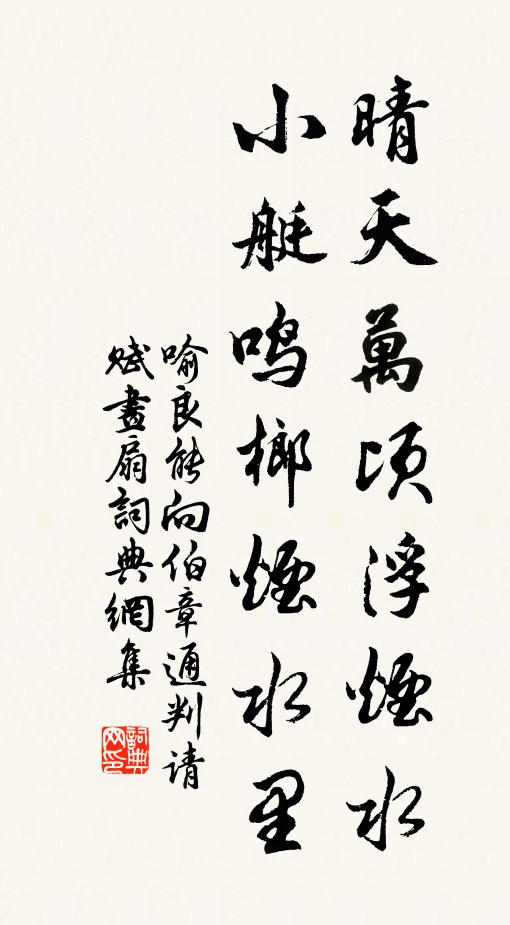 晴天萬頃浮煙水
小艇鸣榔煙水里
喻良能向伯章通判请
赋畫扇詞典網集
詞典
网印